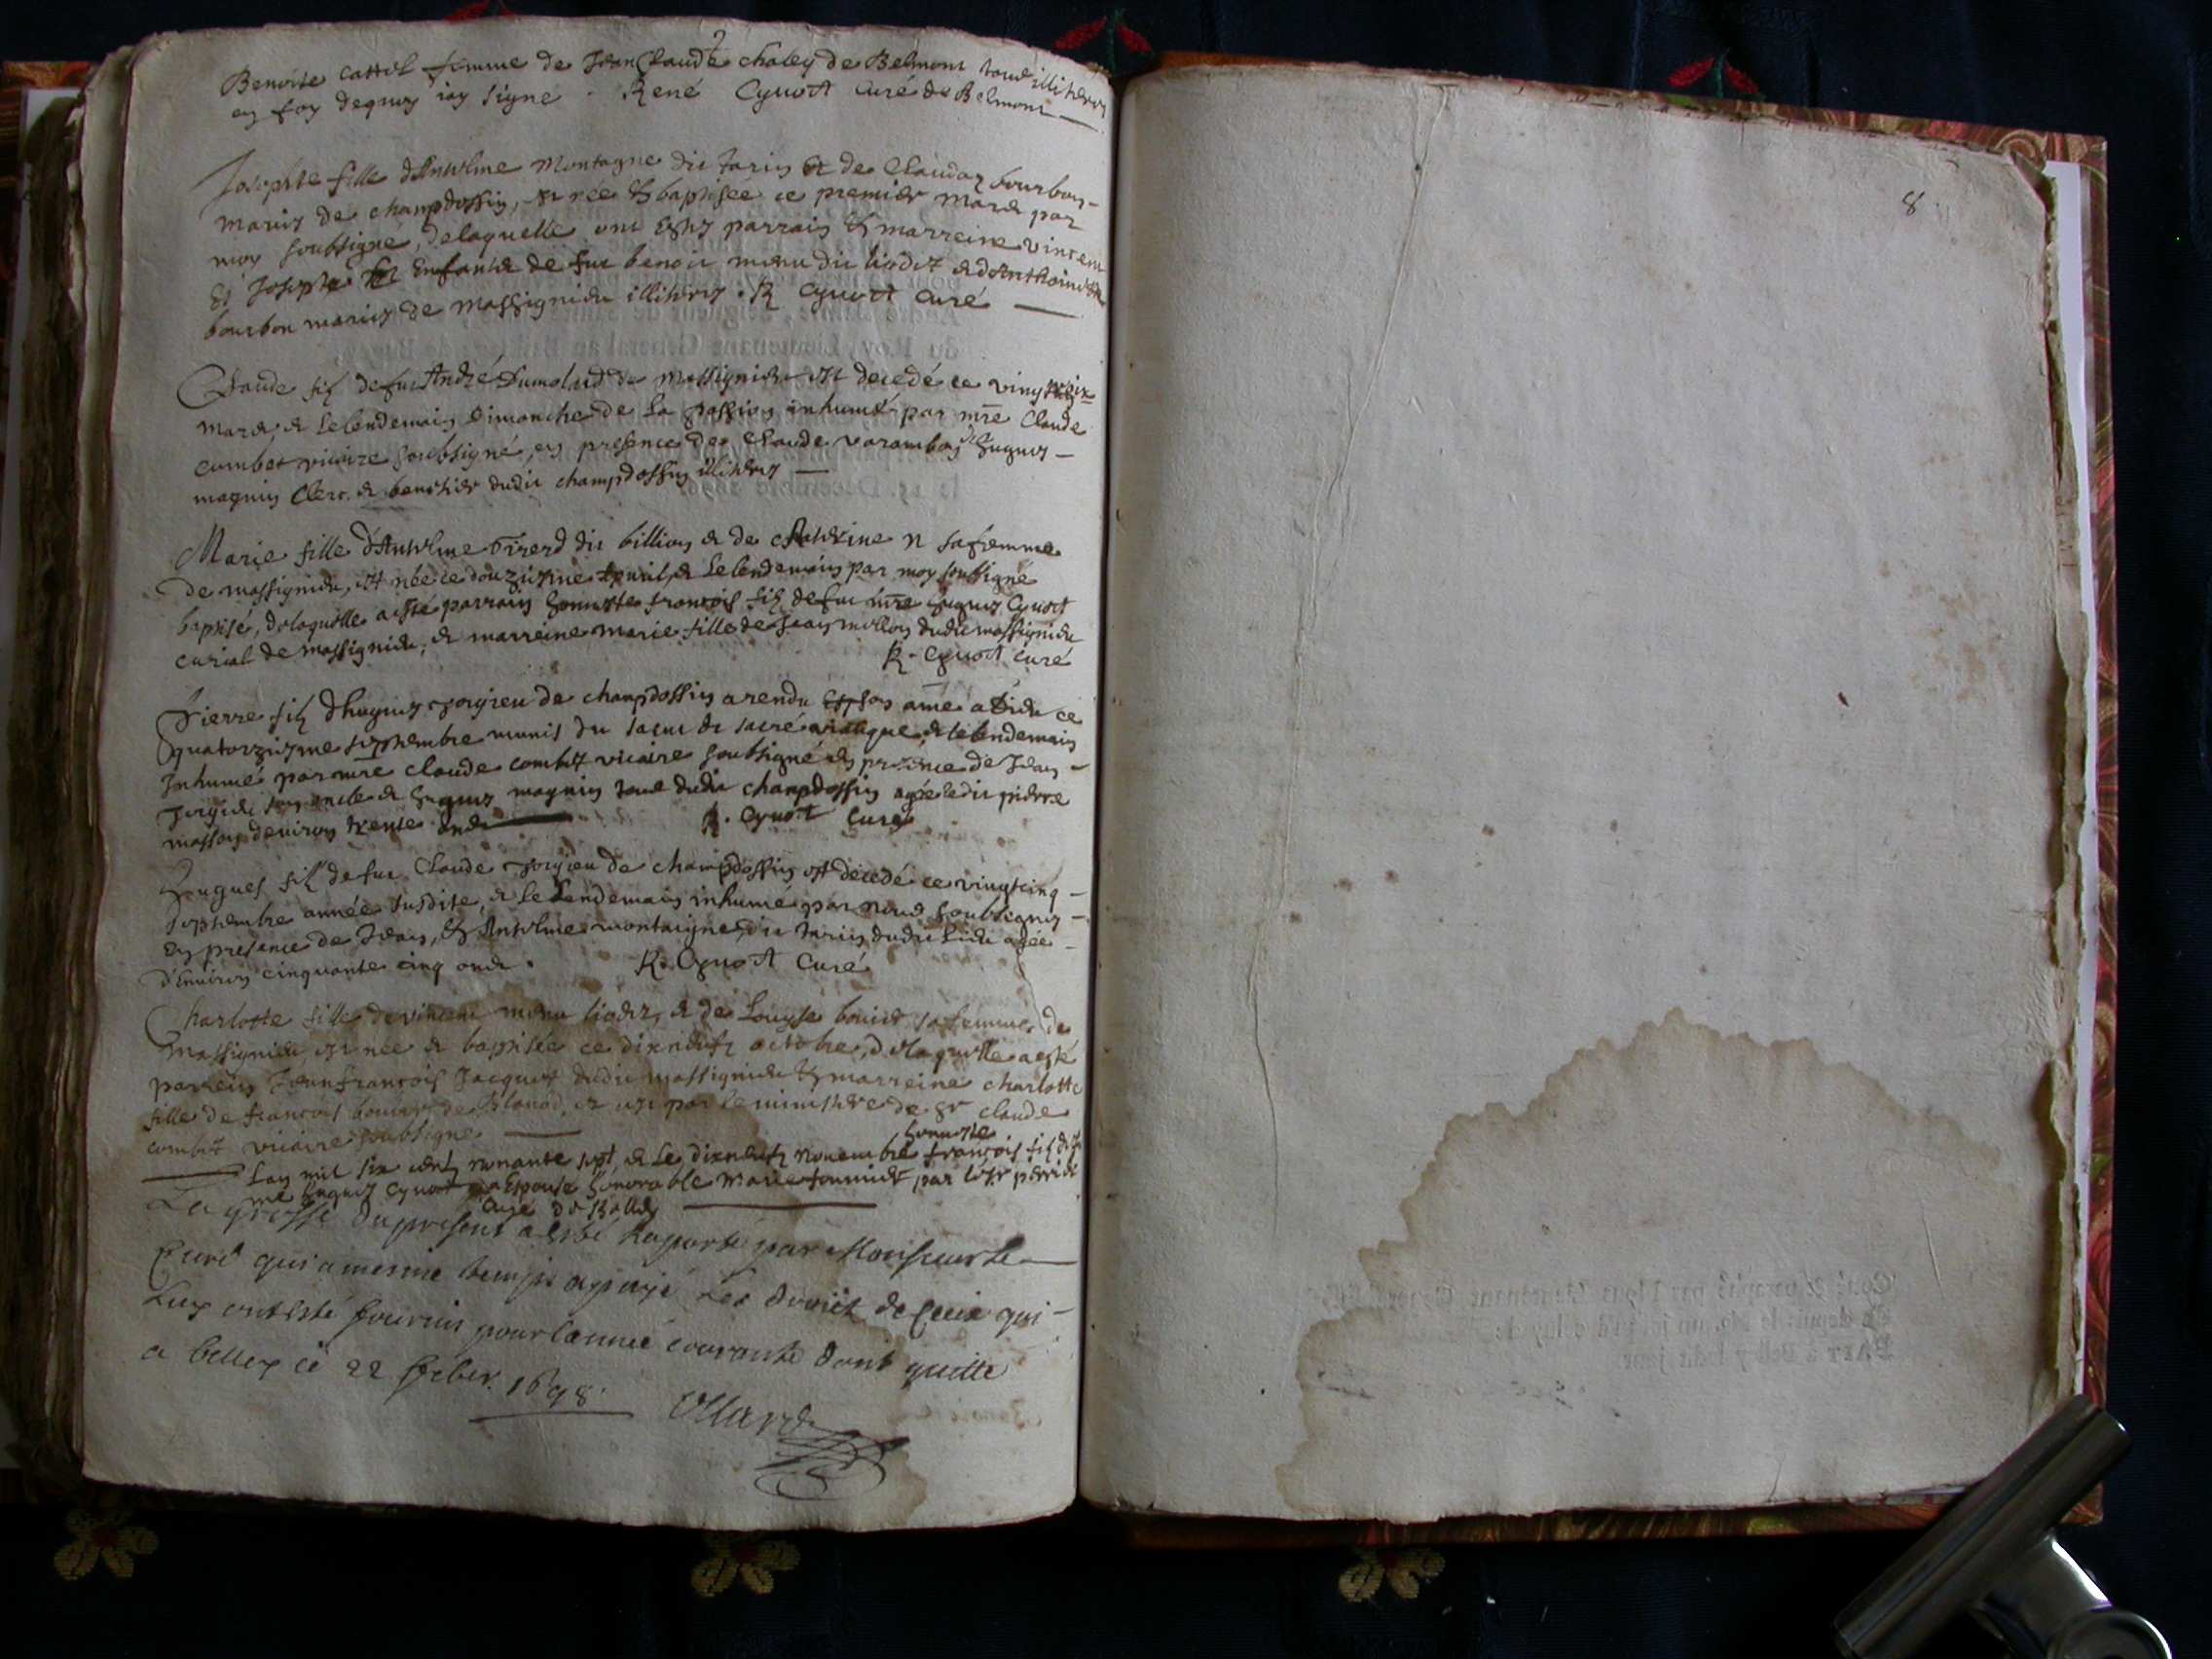 Benoite cattel femme de Jean Claude chaley de Belmont tous illiteres
en foy dequoy iay signe . René Cyuoct curé de Belmont
Josephte fille d'Antelme Montagne dit tarin et de Clauda bourbon
mariez de champdossin, est née et baptisée ce premier mars par
moy soubsigné, delaquelle ont estez parrain et marreine vincent
et Josephte enfants de feu benoit menu dit liodet et d'Anthoinette
bourbon mariez de massignieu illiterez . R Cyuoct curé
Claude filz de feu André Dumolard de massignieu est decedé ce vingt
mars, et lelendemain Dimanche de la passion inhumé par mre Claude
combet vicaire soubsigné, en presence de Claude varambon et huguez
magnin Clerc et benestier dudit champdossin illiterez
Marie fille d'Antelme Girerd dit billion et de Catherine N sa femme
de massignieu, est née ce douziesme Apuril, et lelendemain par moy soubsigné
baptisé, delaquelle a esté parrain honneste francois filz de feu mre huguez Cyuoct
curial de massignieu, et marreine marie fille de Jean millon dudit massignieu
R. Cyuoct curé
Pierre filz d'huguez gorjieu de champdossin a rendu son ame a Dieu ce
quatorziesme septembre munis du sacré viatique, et lelendemain
Inhumé par mre claude combet vicaire soubsigné en presence de Jean
gorjieu son oncle et huguez magnin tous dudit champdossin agée ledit pierre
masson denviron trente ans R. Cyuoct curé
Hugues filz de feu Claude gorjieu de champdossin est decedé ce vingtcinq
septembre année susdite, et le lendemain inhumé par nous soubsignez
en presence de Jean, et Antelme montaigne, dit tarin dudit lieu agée
d'Environ cinquante cinq ans . R. Cyuoct Curé
Charlotte fille de vincent menu liodez, et de Louyse bouier sa femme de
massignieu est née et baptisée ce dixneufz octobre, delaquelle a esté
parrein Jeanfrancois Jacquet dudit massignieu et marreine charlotte
fille de francois bouier de et par le ministere de Sr claude
combet vicaire soubsigné
honneste
Lan mil six centz nonante sept, et le dixneufz nouembre francois filz de feu
mre huguez Cyuoct a Espousé honorable marie par
curé de
La grosse du present a esté Raporté par Monsieur le
Curé qui a mesme temps a payé les droictz de Ceux qui
Luy ont esté fournis pour l'année courante dont quitte
a belley ce 22 feber. 1698
8